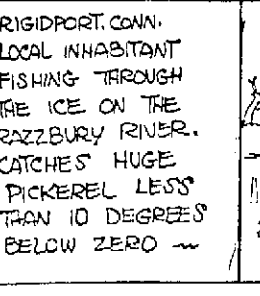 RIGIDPORT. CONN.
LOCAL INHABITANT
FISHING THROUGH
THE ICE ON THE
RAZZBURY RIVER.
CATCHES HUGE
PICKEREL LESS
THAN 10 DEGREES
BELOW ZERO —